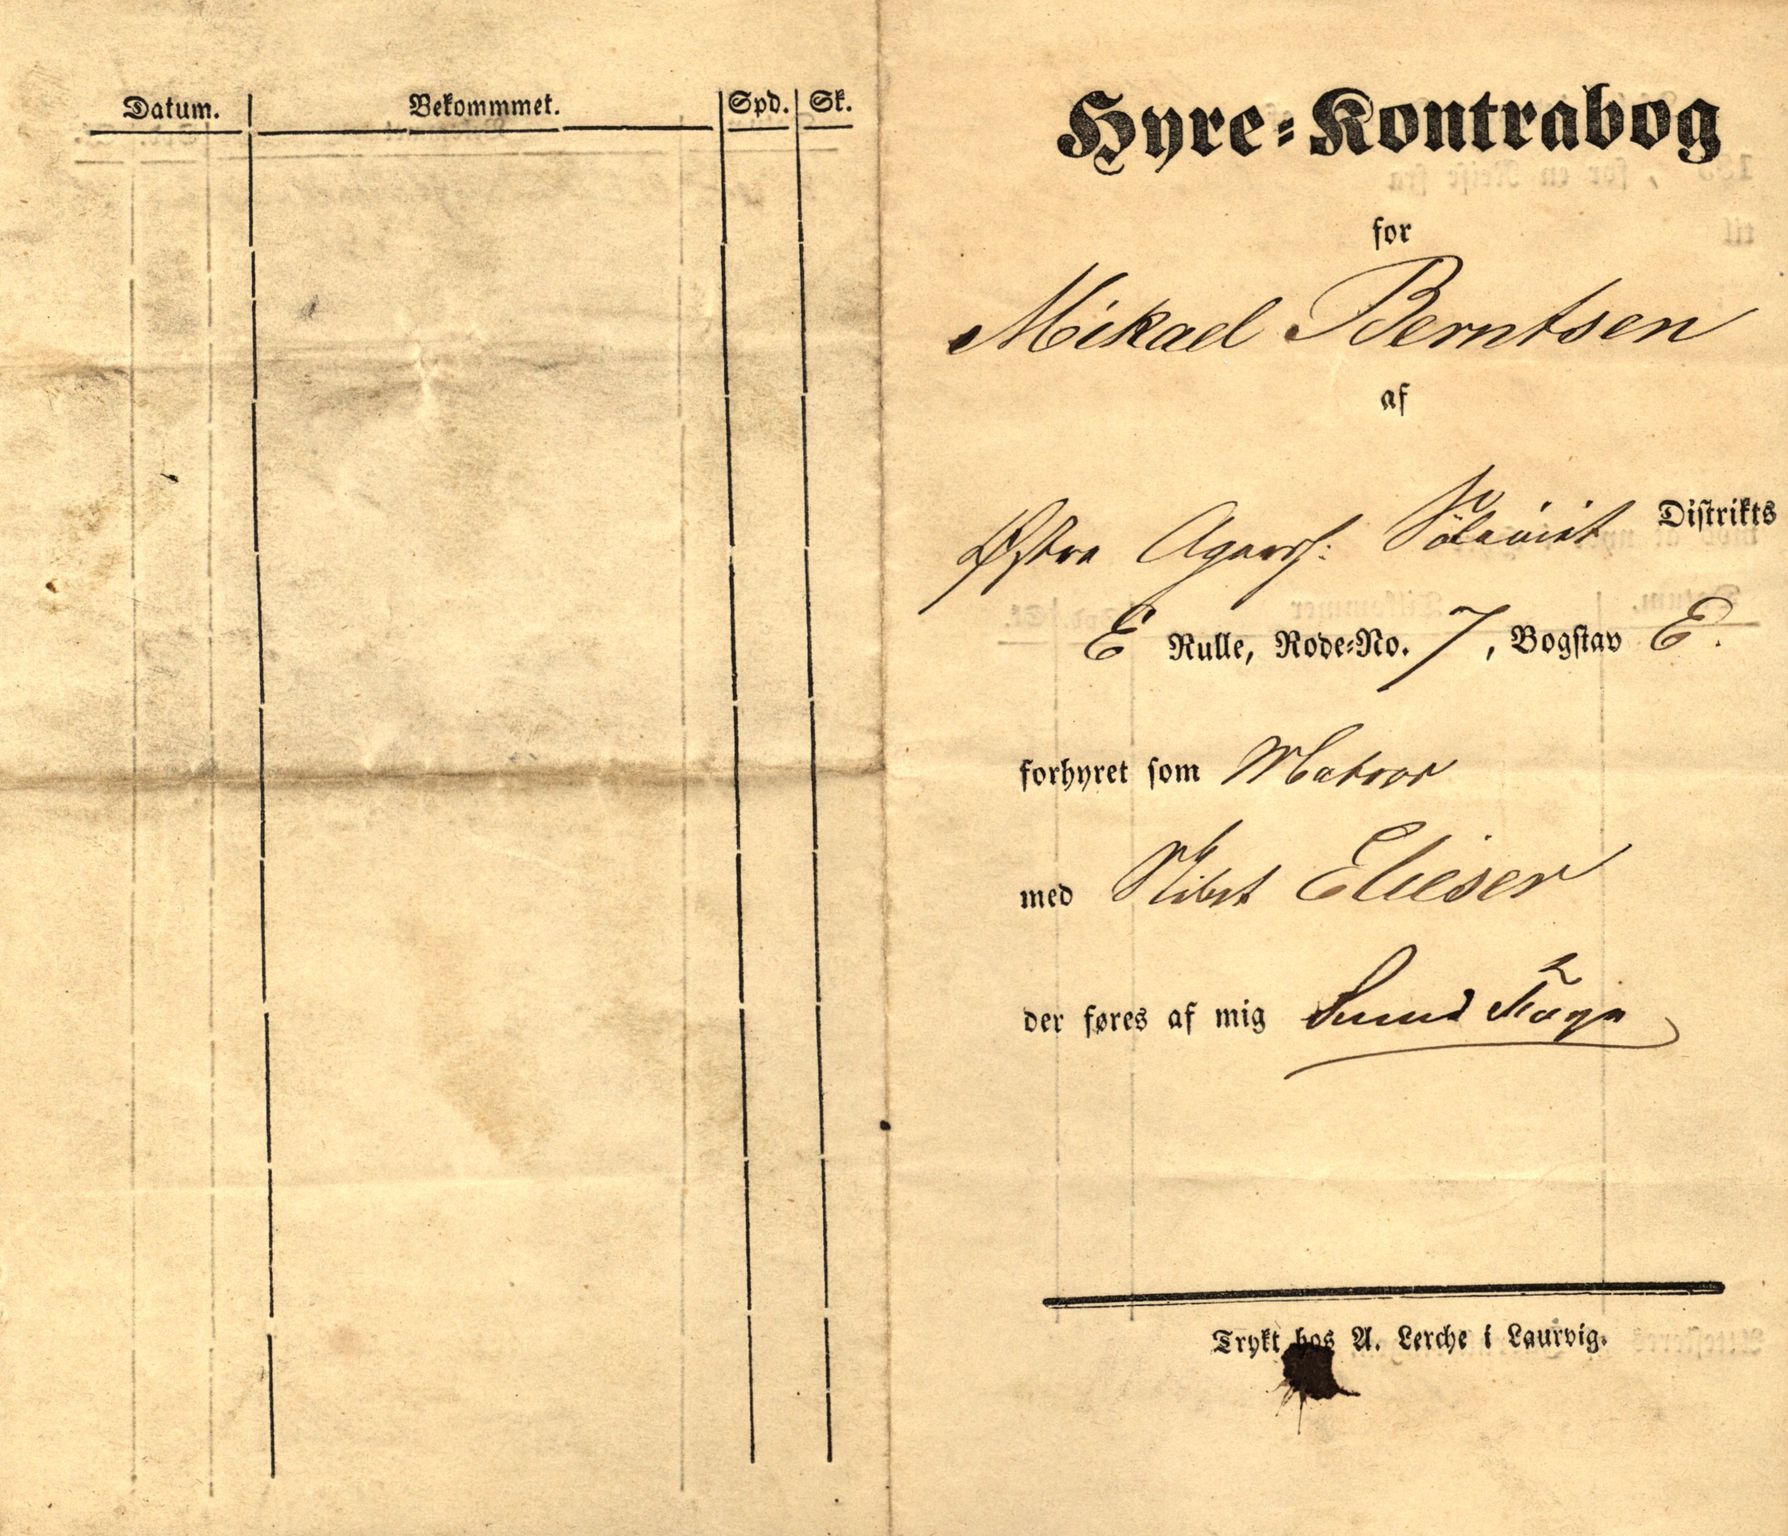 Datum. Bekommmet. Spd. Sk.
Hyre-Kontrabog
for
Mikael Berntsen
af
Østre Distrikts
E Rulle, Rode-No. 7, Bogstav E.
forhyret som Matros
med Skibet Elieser
der føres af mig
Trykt hos A. Lerche i Laurvig.